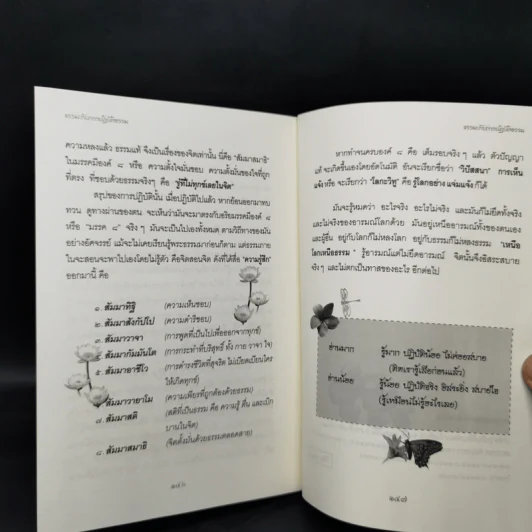 ธรรมะกับการปฏิบัติธรรม
ความหลงแล้ว ธรรมแท้ จึงเป็นเรื่องของจิตเท่านั้น นี่คือ "สัมมาสมาธิ"
ในมรรคมีองค์ ๘ หรือ ความตั้งใจมั่นชอบ ความตั้งมั่นของใจที่ถูก
ที่ตรง ที่ชอบด้วยธรรมจริงๆ คือ "รู้ที่ไม่ทุกข์เลยในจิต"
สรุปของการปฏิบัตินั้น เมื่อปฏิบัติไปแล้ว หากย้อนออกมาทบ
ทวน ดูทางผ่านของตน จะเห็นว่ามันจะมาตรงกับอริยมรรคมีองค์ ๘
หรือ "มรรค ๘" จริงๆ มันจะเป็นไปเองทั้งหมด ตามวิถีทางของมัน
อย่างอัศจรรย์ แม้จะไม่เคยเรียนรู้พระธรรมมาก่อนก็ตาม แต่ธรรมภาย
ในจะสอนจะพาไปเองโดยไม่รู้ตัว คือจิตสอนจิต ดังที่ได้สื่อ "ความรู้สึก"
ออกมานี้ คือ
๑. สัมมาทิฐิ (ความเห็นชอบ)
๒. สัมมาสังกัปโป (ความดำริชอบ)
๓. สัมมาวาจา (การพูดที่เป็นไปเพื่อออกจากทุกข์)
๔. สัมมากัมมันโต (การกระทำที่บริสุทธิ์ ทั้ง กาย วาจา ใจ)
๕. สัมมาอาชีโว (การดำรงชีวิตที่สุจริต ไม่เบียดเบียนใคร
ให้เกิดทุกข์)
๖. สัมมาวายาโม (ความเพียรที่ถูกต้องด้วยธรรม)
๗. สัมมาสติ (สติที่เป็นธรรม คือ ความรู้ ตื่น และเบิก
บานในจิต)
๘. สัมมาสมาธิ (จิตตั้งมั่นด้วยธรรมตลอดสาย)
๒๔๖
ธรรมะกับการปฏิบัติธรรม
หากทำจนครบองค์ ๘ คือ เต็มรอบจริงๆ แล้ว ตัวปัญญา
แท้ จะเกิดขึ้นเองโดยอัตโนมัติ อันจะเรียกชื่อว่า "วิปัสสนา" การเห็น
แจ้ง หรือ จะเรียกว่า "โลกะวิทู" รู้โลกอย่าง แจ่มแจ้ง ก็ได้
มันจะรู้หมดว่า อะไรจริง อะไรไม่จริง และมันก็ไม่ยึดทั้งจริง
และไม่จริงของอารมณ์โลกด้วย มันอยู่เหนืออารมณ์ทั้งของตนเอง
และผู้อื่น อยู่กับโลกก็ไม่หลงโลก อยู่กับธรรมก็ไม่หลงธรรม "เหนือ
โลกเหนือธรรม" รู้อารมณ์แต่ไม่ยึดอารมณ์ จิตนั้นจึงอิสระสบาย
จริงๆ และไม่ตกเป็นทาสของอะไร อีกต่อไป
อ่านมาก รู้มาก ปฏิบัติน้อย ไม่ค่อยสบาย
(คิดเรารู้เรื่อก่อนแล้ว)
อ่านน้อย รู้น้อย ปฏิบัติจริง สบายใจ
๒๔๗